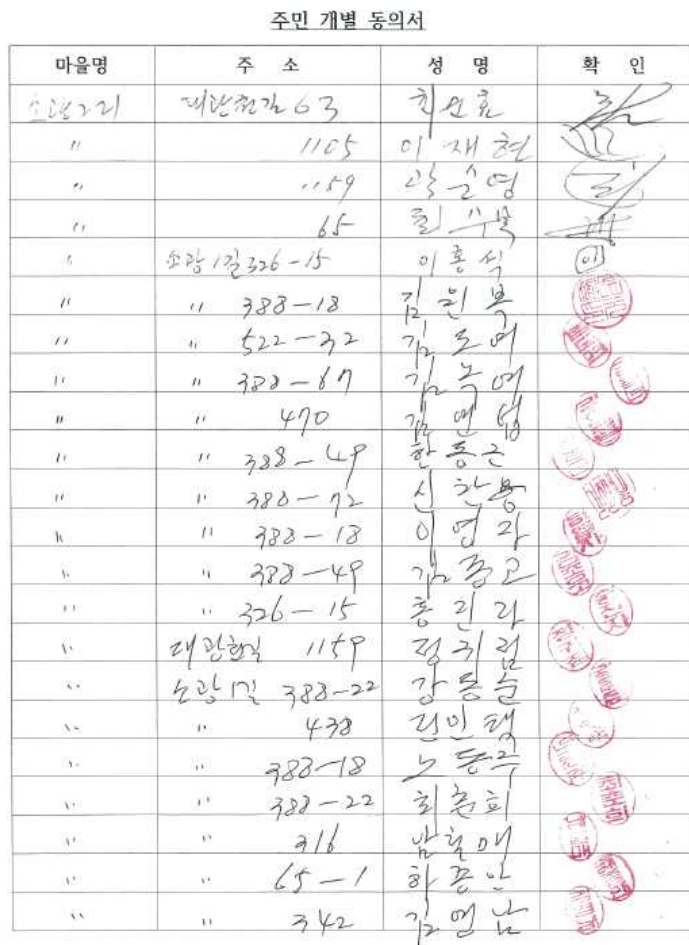 주민 개별 동의서
마을명 주 소 성 명 확 인
소광2리 대관현길 63
" 1105 이재현
" 1159 곽순영
" 65
" 소광1길 326-15 이홍식 이
" " 388-18 김원복
" " 522-32 김도여
" " 388-67 김녹여
" " 470
" " 388-49 한동근
" " 380-72 신찬용
" " 388-18 이영자
" " 388-49 김종고
" " 326-15 홍진라
" 대관현길 1159 정귀럼
" 소광1길 388-22 강동순
" " 438 전인택
" " 388-18 노동주
" " 388-22 최춘희
" " 316
" " 65-1 하종안
" " 342 김영남